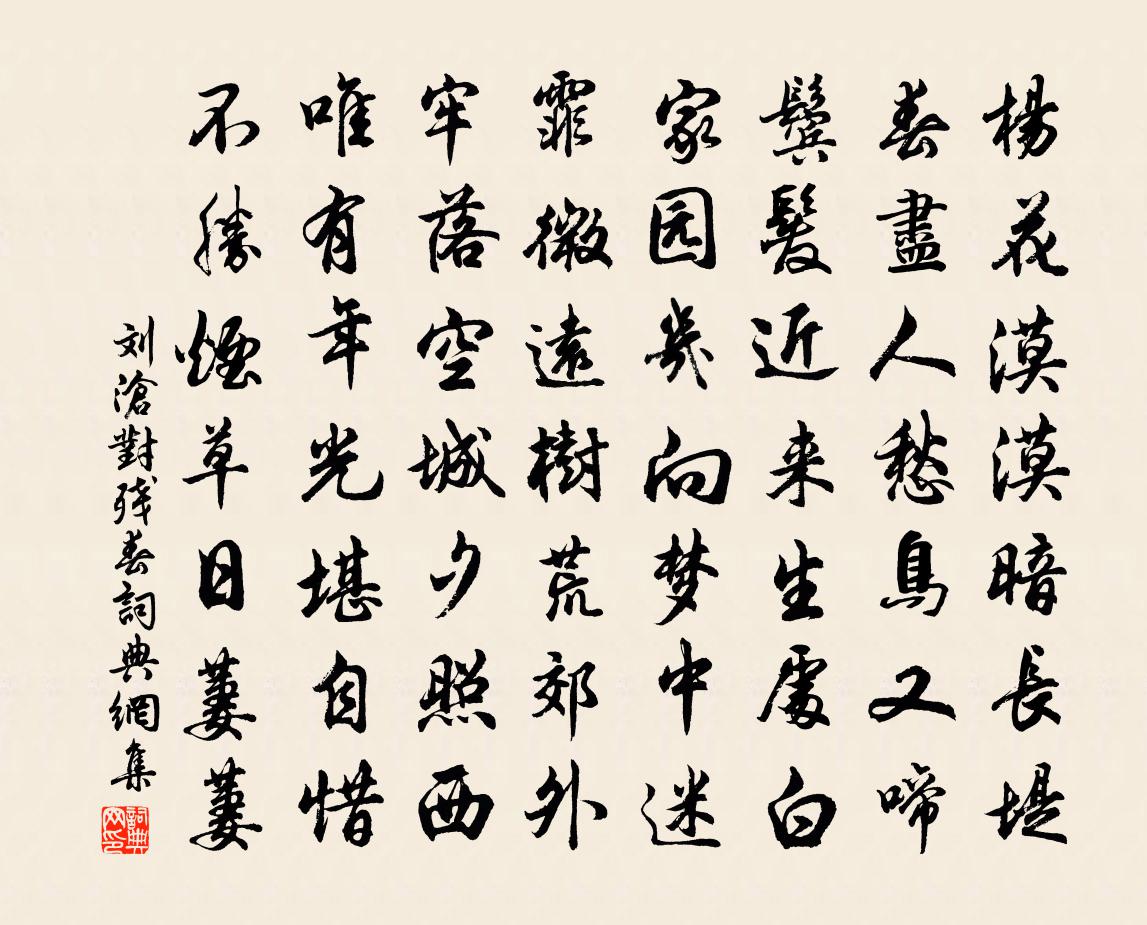 楊花漠漠暗長堤
春盡人愁鳥又啼
鬢髮近来生處白
家园幾向梦中迷
霏微遠樹荒郊外
牢落空城夕照西
唯有年光堪自惜
不勝煙草日萋萋
刘滄對残春詞典網集
詞典网印